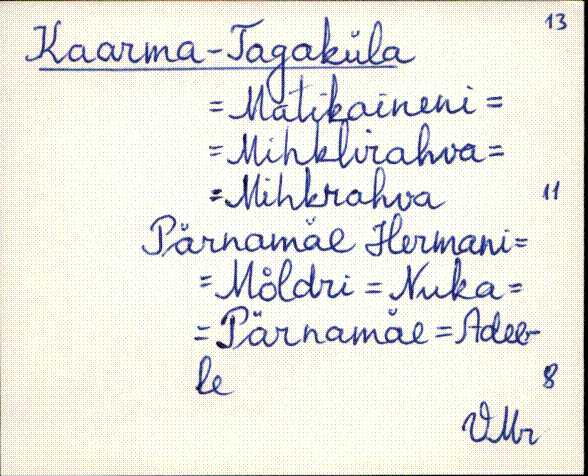 13
Kaarma-Tagaküla
=Matikaineni=
=Mihklirahva=
=Mihkrahva 11
Pärnamäe Hermani=
=Möldri=Nuka=
=Pärnamäe=Adee-
le 8
VMr